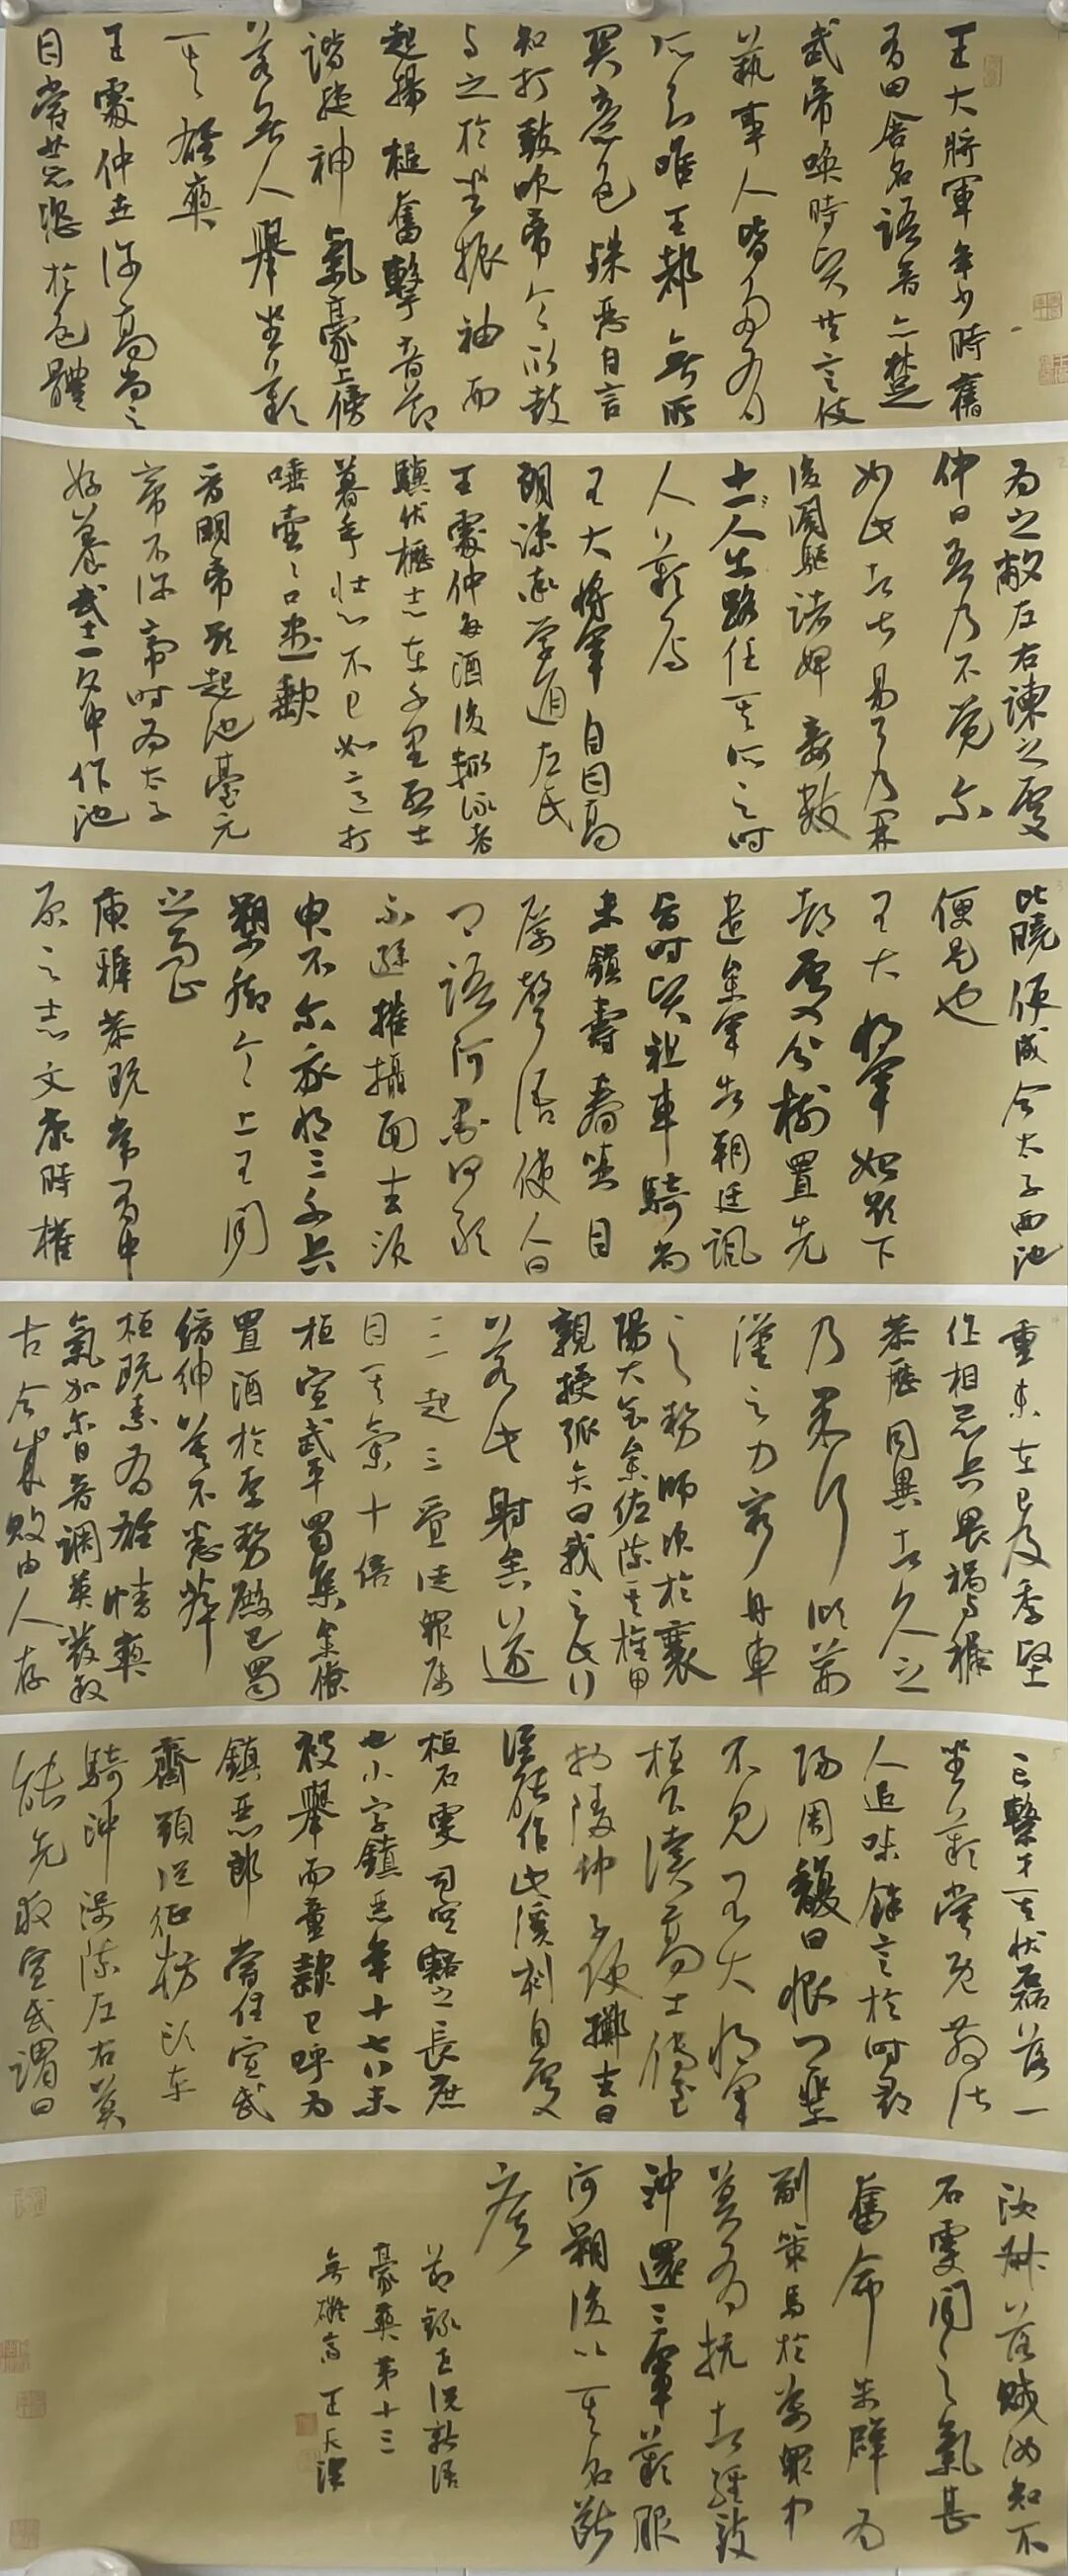 王大將軍年少時舊
有田舍名語音亦楚
武帝喚時賢共言伎
藝事人皆多有
所知唯王都無所
關意色殊惡自言
知打鼓吹帝令取鼓
與之於坐振袖而
起揚槌奮擊音節
諧捷神氣豪上傍
若無人舉坐歎
其雄爽
王處仲世許高尚之
目嘗荒恣於色體
為之敝左右諫之處
仲曰吾乃不覺爾
如此者甚易耳乃開
後閤驅諸婢妾數
十人出路任其所之時
人歎焉
王大將軍自目高
朗疎率學通左氏
王處仲每酒後輒詠老
驥伏櫪志在千里烈士
暮年壯心不已如意打
唾壺壺口盡缺
晉明帝欲起池臺元
帝不許帝時為太子
好養武士一夕中作池
比曉便成今太子西池
便是也
王大將軍始欲下
都處分樹置先
遣參軍告朝廷諷
旨時賢祖車騎尚
未鎮壽春瞋目
厲聲語使人曰
卿語阿黑何敢
不遜催攝面去須
臾不爾我將三千兵
槊腳令上王聞
之而止
庾穉恭既常有中
原之志文康時權
重未在己及季堅
作相忌兵畏禍與穉
恭歷同異者久之
乃果行傾荊
漢之力窮舟車
之勢師次於襄
陽大會參佐陳其旌甲
親授弧矢曰我之此行
若此射矣遂
三起三疊徒眾屬
目其氣十倍
桓宣武平蜀集參僚
置酒於李勢殿巴蜀
縉紳莫不悉萃
桓既素有雄情爽
氣加爾日音調英發敘
古今成敗由人存
亡繫才其狀磊落一
坐歎賞既散諸
人追味餘言於時尋
陽周馥曰恨卿輩
不見王大將軍
桓公讀高士傳至
於陵仲子便擲去曰
誰能作此溪刻自處
桓石虔司空豁之長庶
也小字鎮惡年十七八未
被舉而童隸已呼為
鎮惡郎嘗住宣武
齋頭從征枋頭車
騎沖沒陳左右莫
能先救宣武謂曰
汝叔落賊汝知不
石虔聞之氣甚
奮命朱辟為
副策馬於萬眾中
莫有抗者徑致
沖還三軍歎服
河朔後以其名斷
瘧
節錄世說新語
豪爽第十三